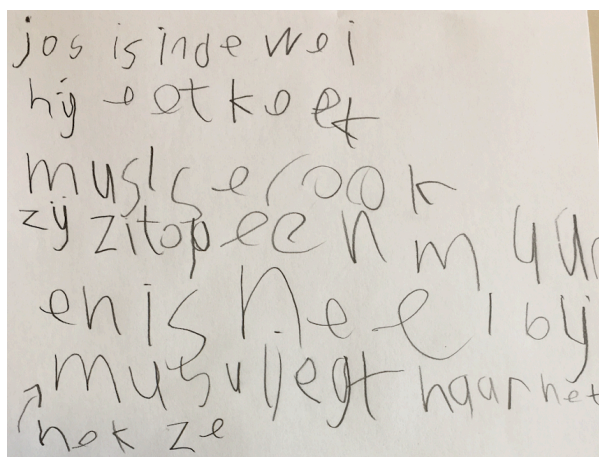 jos is inde wei
hij eet koek
mus is er ook
zij zit op een muur
en is heel blij
mus vliegt naar het
hok ze